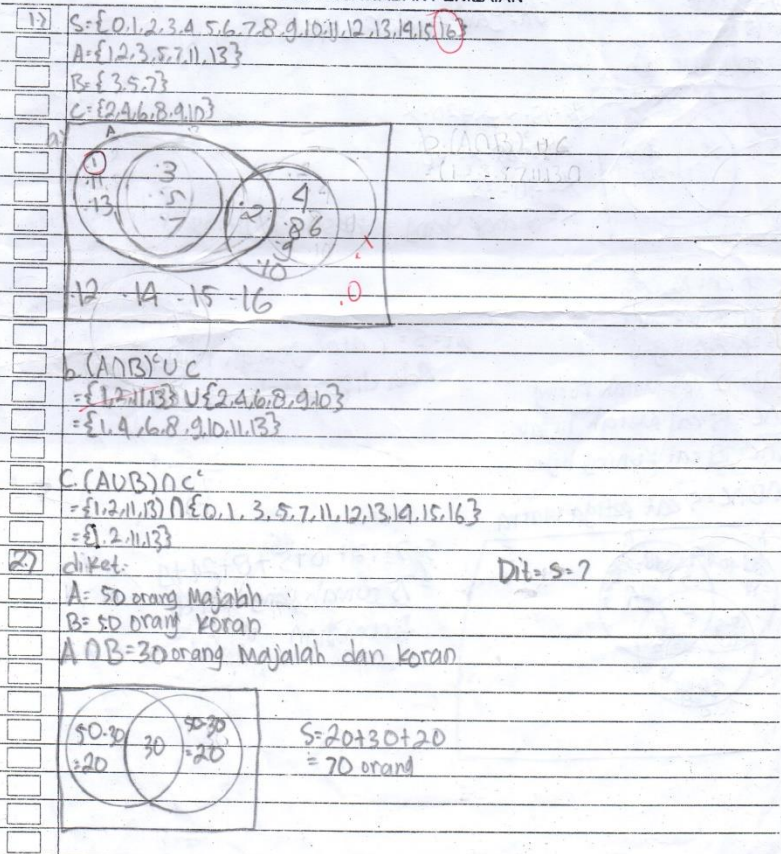 1.) S={0,1,2,3,4,5,6,7,8,9,10,11,12,13,14,15,16}
A={1,2,3,5,7,11,13}
B={3,5,7}
C={2,4,6,8,9,10}
a)
A
1 .3 4
.11 .5 .2 .8 6
.13 .7 .9
.10
.12 .14 .15 .16 .0
b. (A∩B)ᶜ∪C
={1,2,11,13}∪{2,4,6,8,9,10}
={1,4,6,8,9,10,11,13}
C. (A∪B)∩Cᶜ
={1,2,11,13)∩{0,1,3,5,7,11,12,13,14,15,16}
={1,2,11,13}
2.) diket: Dit: S=?
A= 50 orang Majalah
B= 50 orang koran
A∩B=30 orang Majalah dan koran
50-30 30 50-30
=20 =20
S=20+30+20
= 70 orang